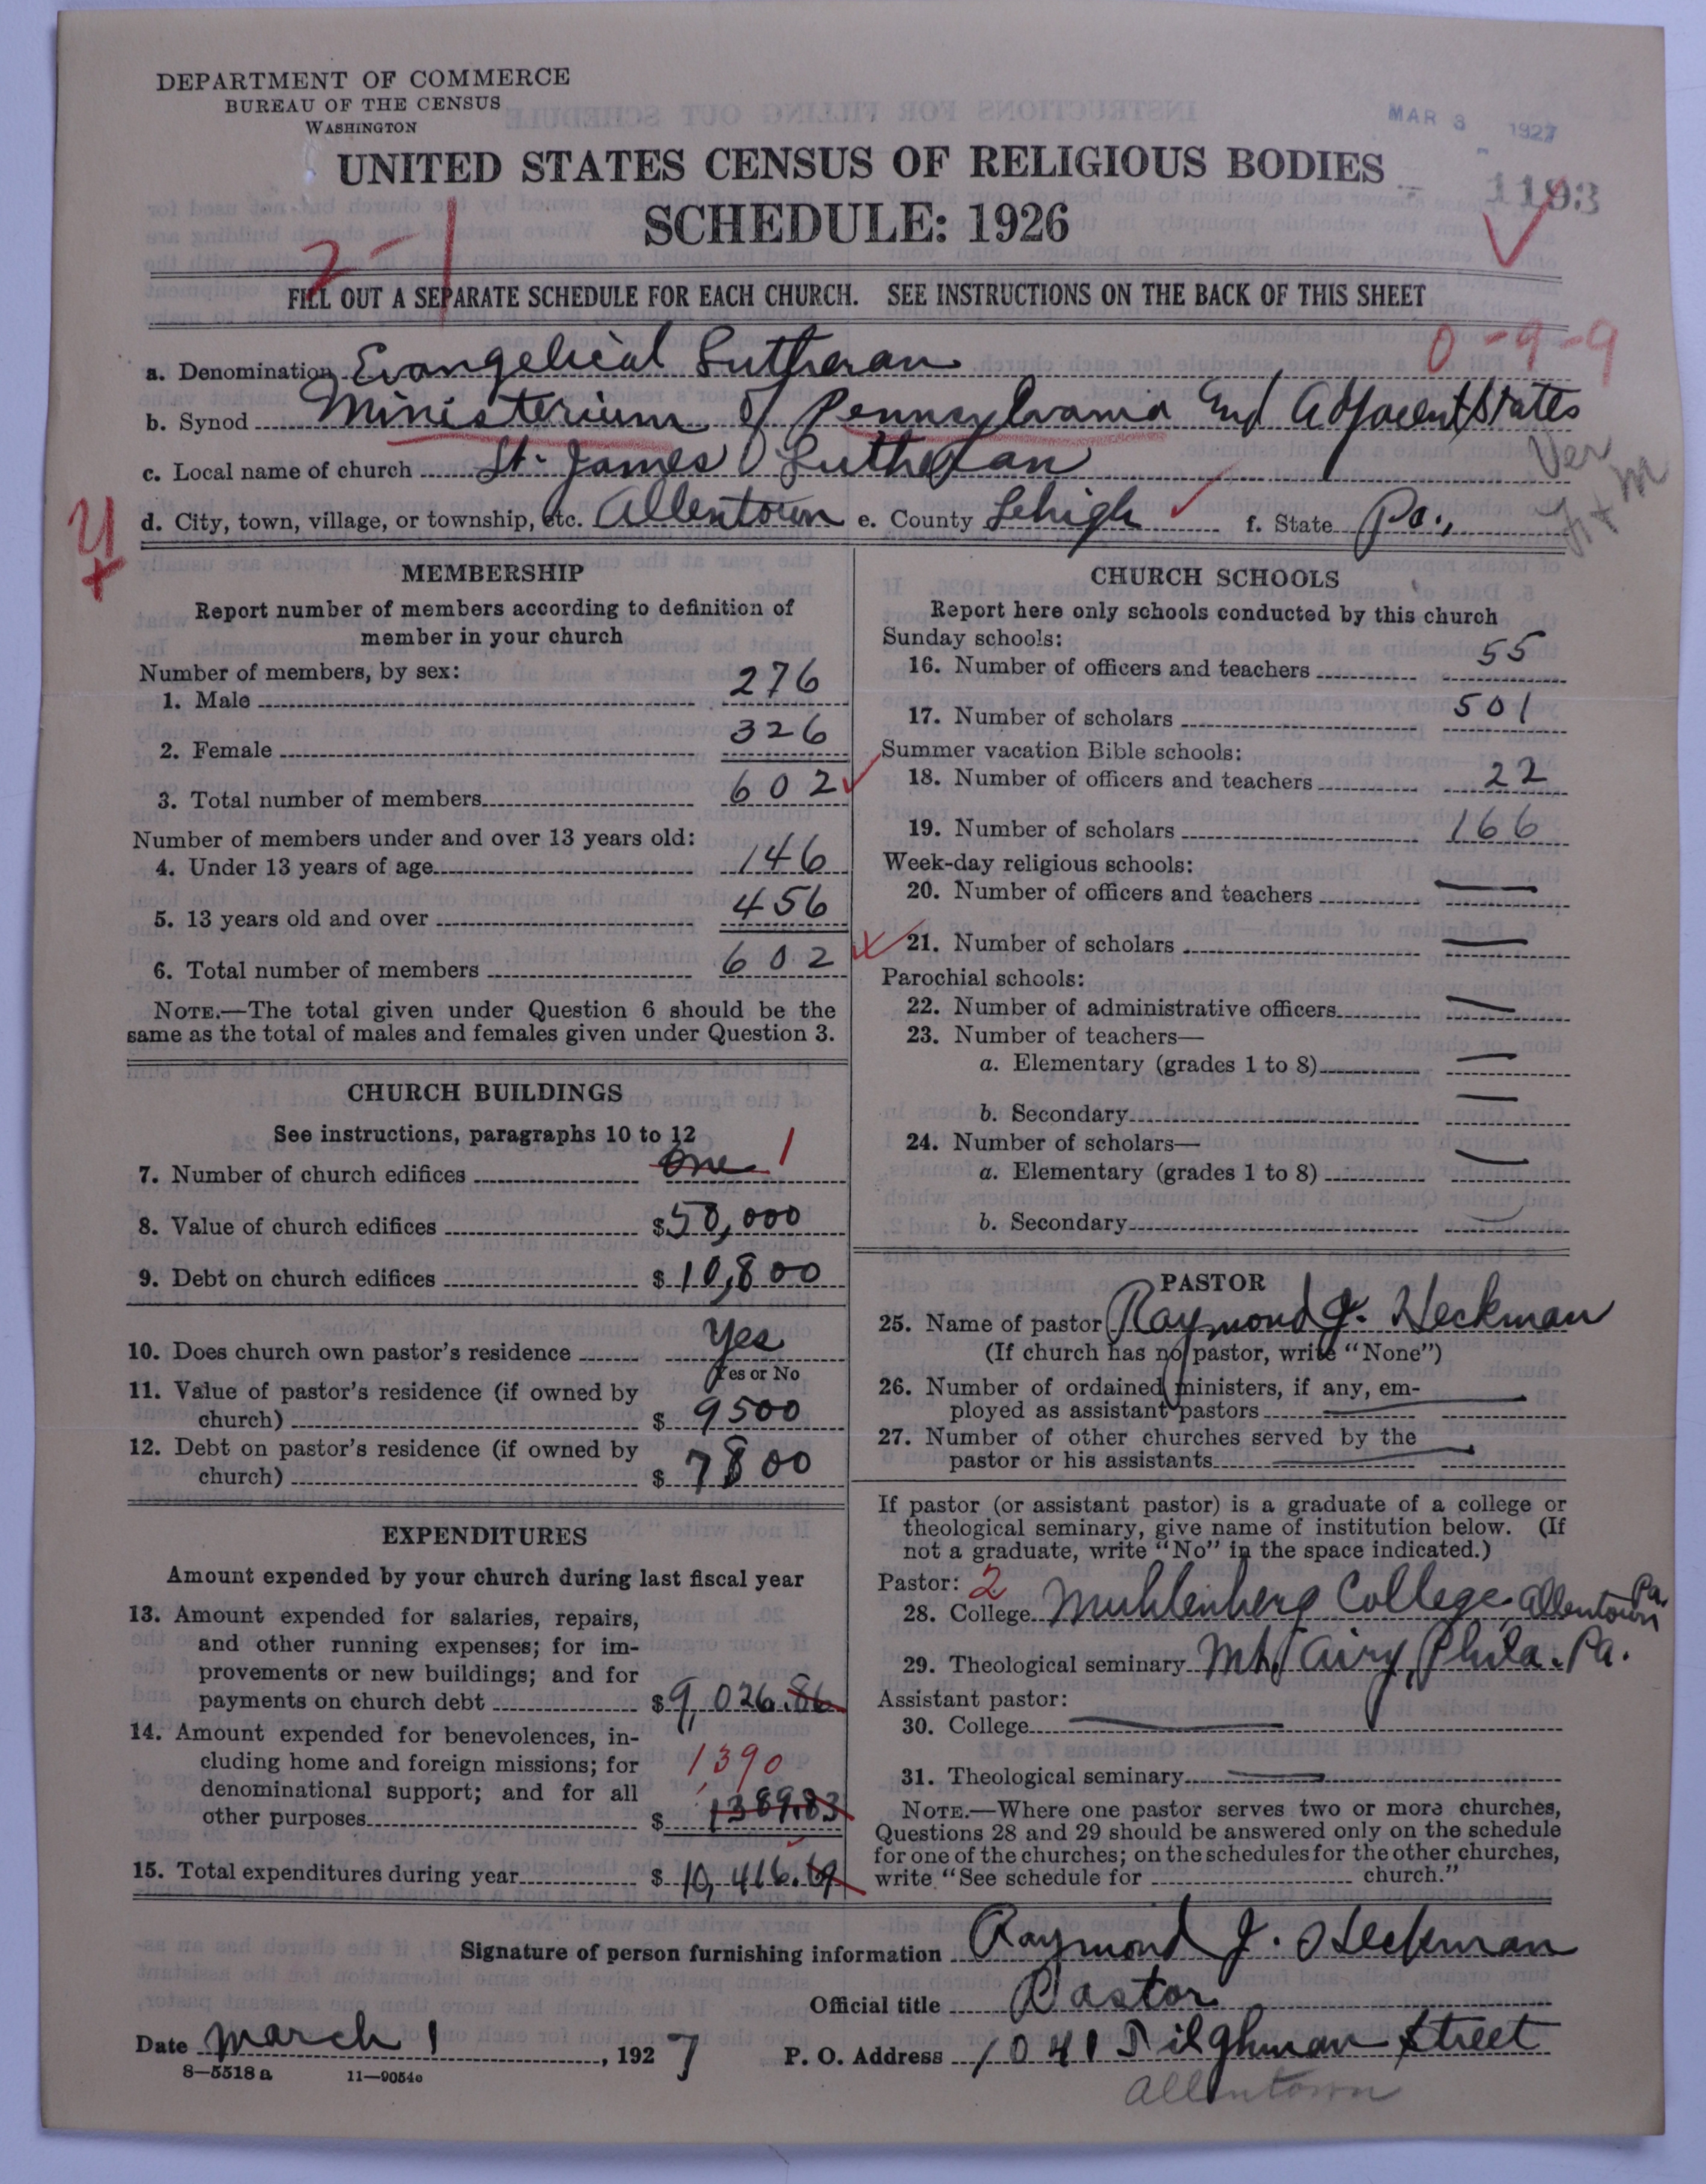 DEPARTMENT OF COMMERCE
BUREAU OF THE CENSUS
WASHINGTON
MAR 3 1927
UNITED STATES CENSUS OF RELIGIOUS BODIES
1193
SCHEDULE: 1926
2-1
FILL OUT A SEPARATE SCHEDULE FOR EACH CHURCH. SEE INSTRUCTIONS ON THE BACK OF THIS SHEET
0-9-9
a. Denomination Evangelical Lutheran
b. Synod Ministerium of Pennsylvania and Adjacent States
c. Local name of church St. James Lutheran
Ver
d. City, town, village, or township, etc. Allentown e. County Lehigh f. State Pa.,
MEMBERSHIP
Report number of members according to definition of
member in your church
Number of members, by sex:
1. Male 276
2. Female 326
3. Total number of members 602
Number of members under and over 13 years old:
4. Under 13 years of age 146
5. 13 years old and over 456
6. Total number of members 602
NOTE.—The total given under Question 6 should be the
same as the total of males and females given under Question 3.
CHURCH BUILDINGS
See instructions, paragraphs 10 to 12
7. Number of church edifices One 1
8. Value of church edifices $50,000
9. Debt on church edifices $10,800
10. Does church own pastor's residence Yes
Yes or No
11. Value of pastor's residence (if owned by
church) $9500
12. Debt on pastor's residence (if owned by
church) $7800
EXPENDITURES
Amount expended by your church during last fiscal year
13. Amount expended for salaries, repairs,
and other running expenses; for im-
provements or new buildings; and for
payments on church debt $9,026.86
14. Amount expended for benevolences, in-
cluding home and foreign missions; for 1390
denominational support; and for all
other purposes $1389.83
15. Total expenditures during year $10,416.69
CHURCH SCHOOLS
Report here only schools conducted by this church
Sunday schools:
16. Number of officers and teachers 55
17. Number of scholars 501
Summer vacation Bible schools:
18. Number of officers and teachers 22
19. Number of scholars 166
Week-day religious schools:
20. Number of officers and teachers —
21. Number of scholars —
Parochial schools:
22. Number of administrative officers —
23. Number of teachers—
a. Elementary (grades 1 to 8) —
b. Secondary —
24. Number of scholars—
a. Elementary (grades 1 to 8) —
b. Secondary —
PASTOR
25. Name of pastor Raymond J. Heckman
(If church has no pastor, write "None")
26. Number of ordained ministers, if any, em-
ployed as assistant pastors —
27. Number of other churches served by the
pastor or his assistants —
If pastor (or assistant pastor) is a graduate of a college or
theological seminary, give name of institution below. (If
not a graduate, write "No" in the space indicated.)
Pastor: 2
28. College Muhlenberg College Allentown Pa.
29. Theological seminary Mt. Airy, Phila. Pa.
Assistant pastor:
30. College —
31. Theological seminary —
NOTE.—Where one pastor serves two or more churches,
Questions 28 and 29 should be answered only on the schedule
for one of the churches; on the schedules for the other churches,
write "See schedule for church."
Signature of person furnishing information Raymond J. Heckman
Official title Pastor
Date March 1, 1927 P. O. Address 1041 Tilghman Street
8—5518 a 11—9054c
Allentown